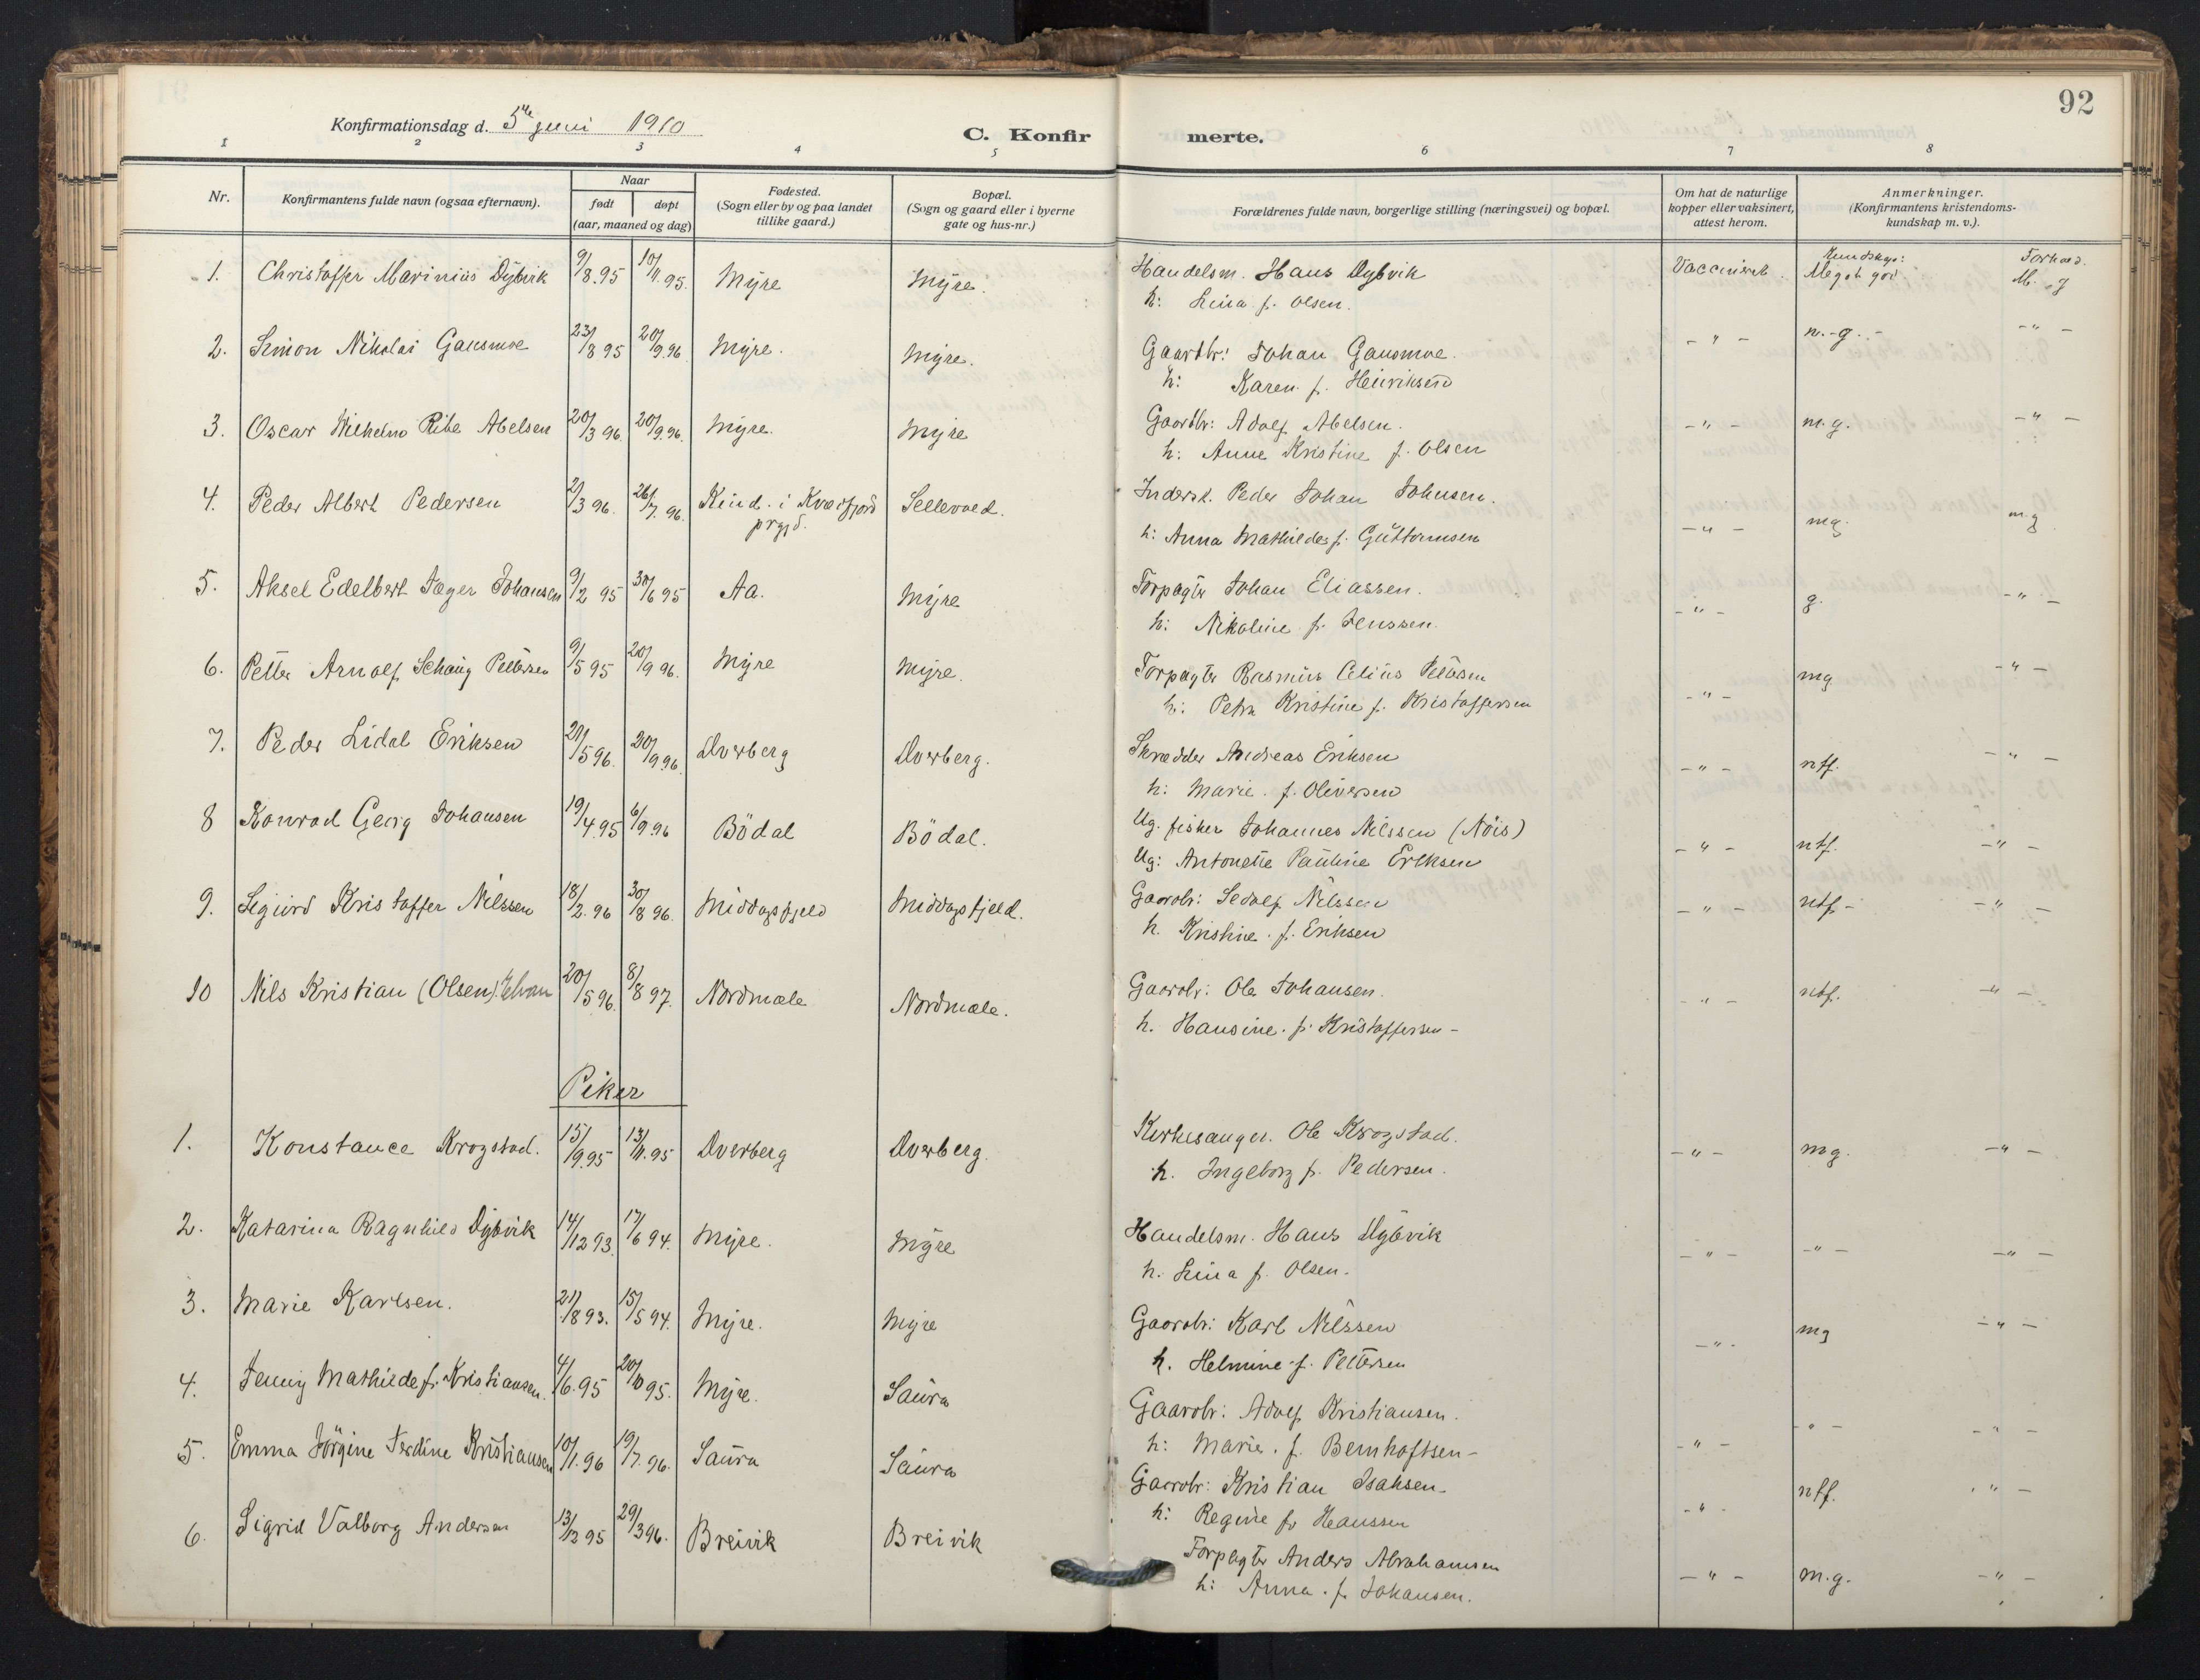 92
Konfirmationsdag d. 5te juni 1910
C. Konfirmerte.
1 2 3 4 5 6 7 8
Nr. Konfirmantens fulde navn (ogsaa efternavn). Naar født døpt (aar, maaned og dag) Fødested. (Sogn eller by og paa landet tillike gaard.) Bopæl. (Sogn og gaard eller i byerne gate og hus-nr.) Forældrenes fulde navn, borgerlige stilling (næringsvei) og bopæl. Om hat de naturlige kopper eller vaksinert, attest herom. Anmerkninger. (Konfirmantens kristendomskundskap m. v.).
Kundskap: Forhold.
1. Christoffer Marinius Dybvik 9/8.95 10/11.95. Myre Myre. Handelsm. Hans Dybvik Vaccineret. Meget god M. g
h: Lina f. Olsen.
2. Simon Nikolai Gausmoe 23/8 95 20/9.96 Myre. Myre. Gaardbr: Johan Gausmoe. - " - m.-g. - - " -
h: Karen f. Henriksen
3. Oscar Wilhelm Ribe Abelsen 20/3 96. 20/9.96. Myre. Myre Gaardbr: Adolf Abelsen. - " - m.g. - " -
h: Anne Kristine f. Olsen
4. Peder Albert Pedersen 2/3 96. 26/7. 96. Kind. i Kvæfjord prgjd. Sellevold. Inderst. Peder Johan Johnsen. - " - mg. m.g
h: Anna Mathilde f. Guttormsen
5. Aksel Edelbert Jæger Johansen 9/2 95 30/6 95 Aa. Myre Forpagter Johan Eliassen. - " - g. - " -
h: Nikoline f. Jenssen.
6. Petter Arnolf Schaug Pettersen 9/5 95 20/9 96. Myre Myre. Forpagter Rasmus Celius Pettersen - " - mg - " -
h: Petra Kristine f. Kristoffersen
7. Peder Lidal Eriksen 21/5 96. 20/9 96. Dverberg Dverberg. Skrædder Andreas Eriksen - " - ntf. - " -
h: Marie. f. Oliversen
8 Konrad Georg Johansen 19/4.95 6/9.96 Bödal Bödal. Ug. fisker Johannes Nilssen (Nöis) - " - ntf. - " -
Ug: Antonette Pauline Eriksen
9. Sigurd Kristoffer Nilssen 18/2. 96 30/8 96. Middagsfjeld Middagsfjeld. Gaardbr: Sedolf Nilssen - " - ntf - - " -
h. Kristine. f. Eriksen
10 Nils Kristian (Olsen) 20/5 96. 8/8 97. Nordmæle Nordmæle. Gaardbr: Ole Johansen. - " - ntf. - " -
h. Hansine. f. Kristoffersen -
Piker
1. Konstance Krogstad. 15/9.95 13/11.95 Dverberg Dverberg. Kirkesanger. Ole Krogstad. - " - mg. - " -
h. Ingeborg f. Pedersen.
2. Katarina Ragnhild Dybvik 14/12 93. 17/6 94. Myre. Myre Handelsm. Hans Dybvik - " - - " - - " -
h. Lina f. Olsen.
3. Marie Karlsen. 21/8 93. 15/5 94. Myre. Myre Gaardbr: Karl Nilssen - " - mg - " -
h. Helmine f. Pettersen
4. Jenny Mathilde f. Kristiansen. 4/6.95 20/10 95. Myre. Saura Gaardbr: Adolf Kristiansen. - " - - " - - " -
h: Marie. f. Bernhoftsen -
5. Emma Jörgine Ferdine Kristiansen 10/1. 96 19/7. 96. Saura Saura Gaardbr: Kristian Isaksen - " - ntf. - " -
h: Regine f. Hanssen
6. Sigrid Valborg Andersen 13/12 95 29/3 96. Breivik Breivik Forpagter Anders Abrahamsen - " - m.g. - " -
h: Anna. f. Johansen.